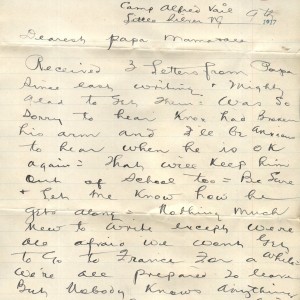 Camp Alfred Vail
Little Silver NJ 9th 1917
Dearest papa Mama & all
Received 3 Letters from Papa
Since last writing & Mighty
Glad to Get Them = Was So
Sorry to hear Knox had Broken
his arm and I'll be anxious
to hear when he is OK
again = That will Keep him
Out of School too = Be Sure
& Let me Know how he
Gets along = Nothing Much
New to write except we're
all afraid we wont Get
to Go to France For a While =
We're all prepared To leave
But Nobody Knows anything